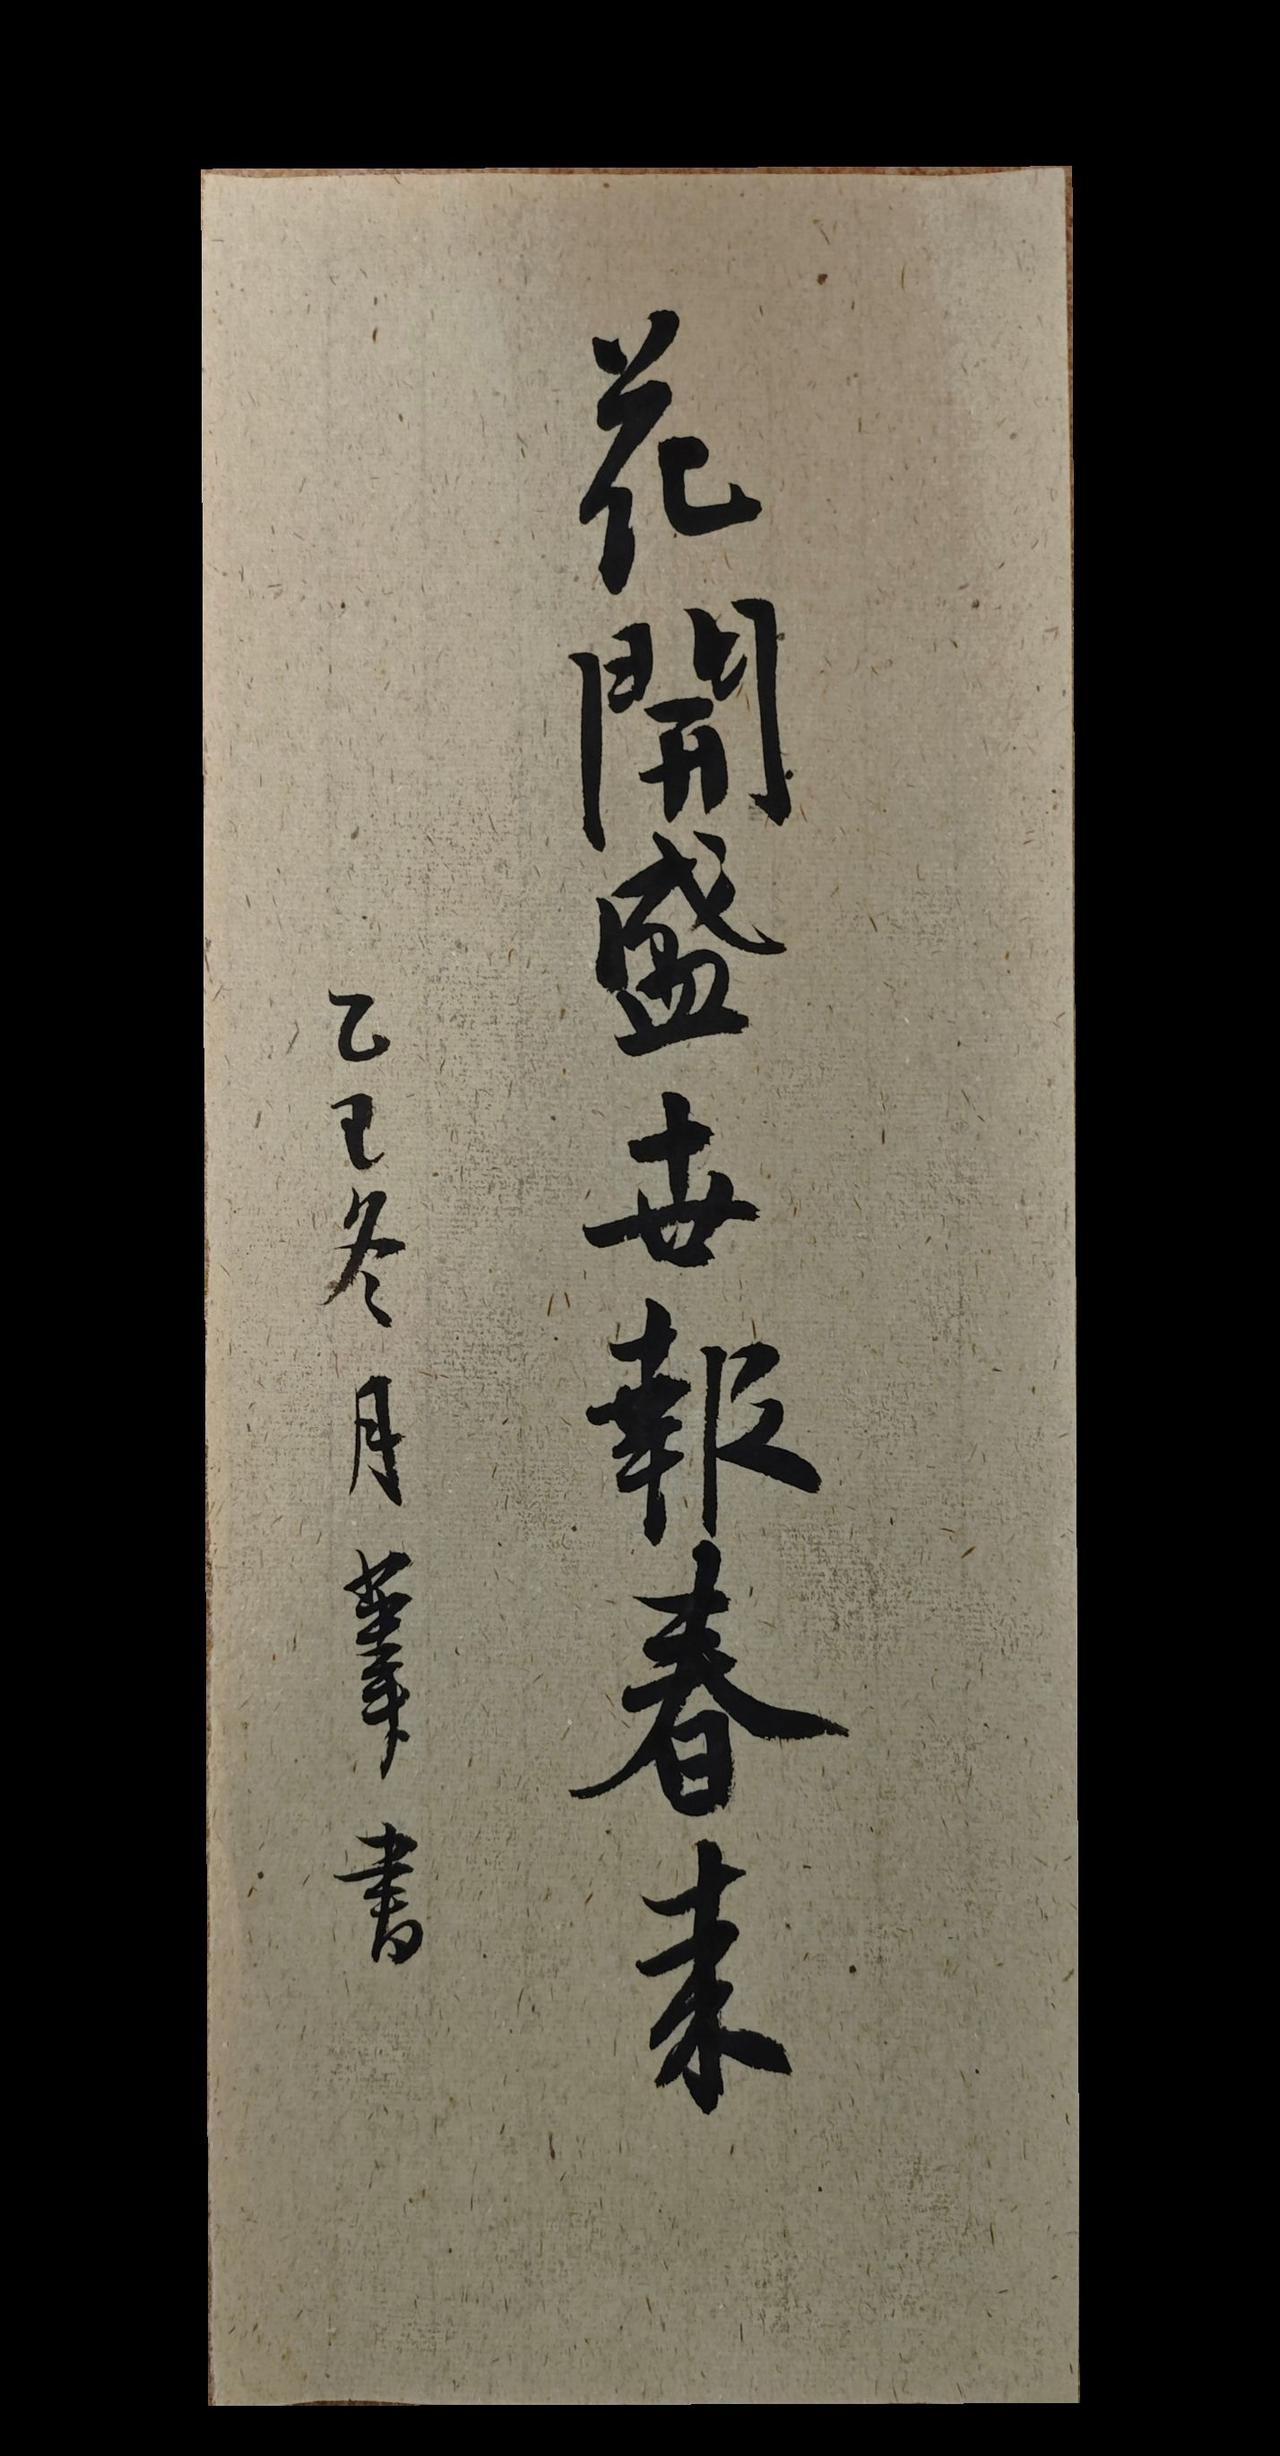 花開盛世報春来
乙巳冬月華書